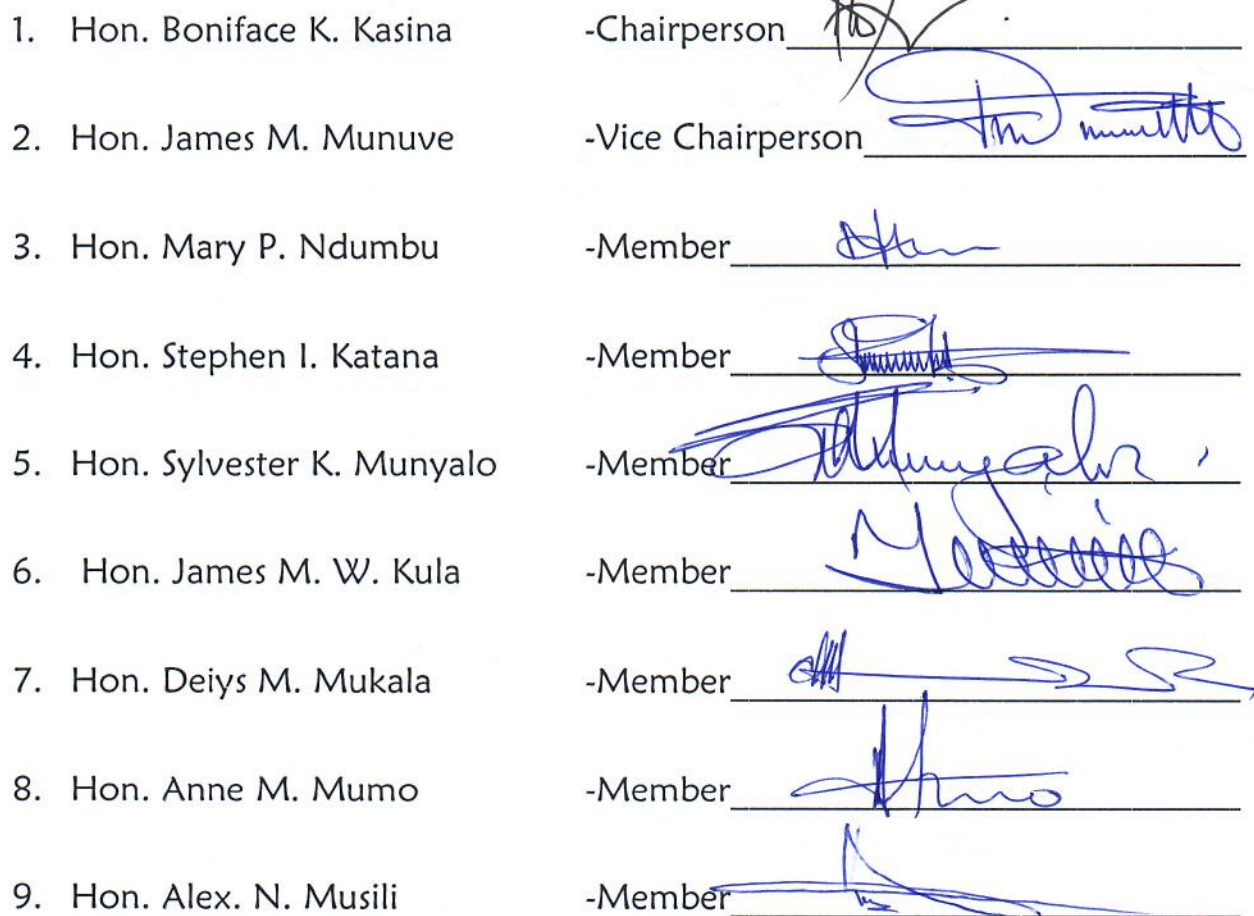 1. Hon. Boniface K. Kasina -Chairperson
2. Hon. James M. Munuve -Vice Chairperson
3. Hon. Mary P. Ndumbu -Member
4. Hon. Stephen I. Katana -Member
5. Hon. Sylvester K. Munyalo -Member
6. Hon. James M. W. Kula -Member
7. Hon. Deiys M. Mukala -Member
8. Hon. Anne M. Mumo -Member
9. Hon. Alex. N. Musili -Member